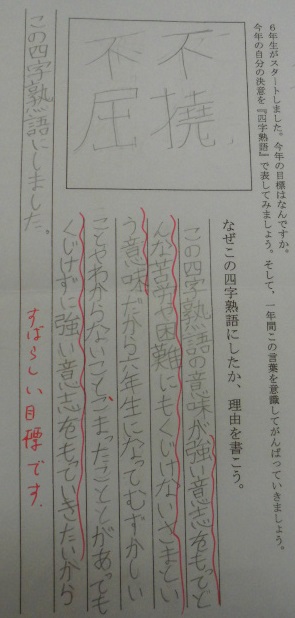 6年生がスタートしました。今年の目標はなんですか。
今年の自分の決意を『四字熟語』で表してみましょう。そして、一年間この言葉を意識してがんばっていきましょう。
不撓
不屈
なぜこの四字熟語にしたか、理由を書こう。
この四字熟語の意味が強い意志をもってど
んな苦労や困難にもくじけないさまとい
う意味だから六年生になってむずかしい
ことやわからないこと、こまったこととがあっても
くじけずに強い意志をもっていきたいから
この四字熟語にしました。
すばらしい目標です。